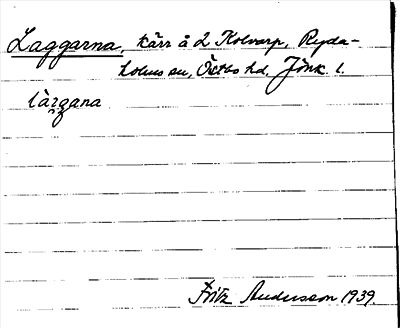 Laggarna, kärr å 2 Kolvarp, Ryda-
holms sn, Östbo hd, Jönk. l.
làggana
Fritz Andersson 1939.